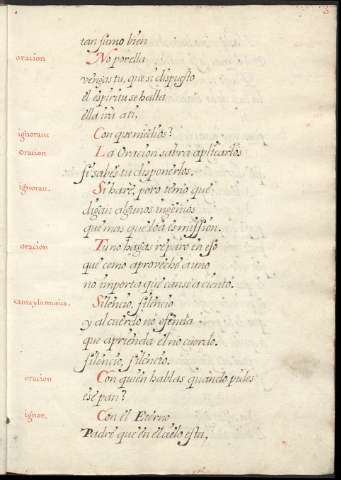 tan sumo bien
oracion No por ella
vengas tu, que si dispuesto
el espiritu se halla
ella ira a ti.
ignoran: Con que medios?
oracion La Oracion sabra aplicarlos
si sabes tu disponerlos.
ignoran. Si hare, pero temo que
digan algunos ingenios
que mas que loa es mission.
oracion Tu no hagas reparo en eso
que como aproveche a uno
no importa que canse a ciento.
canta y la musica. Silencio, silencio
y al cuerdo no ofenda
que aprienda el no cuerdo.
silencio, silencio.
oracion Con quien hablas quando pides
ese pan?
ignor. Con el Eterno
Padre que en el cielo esta,